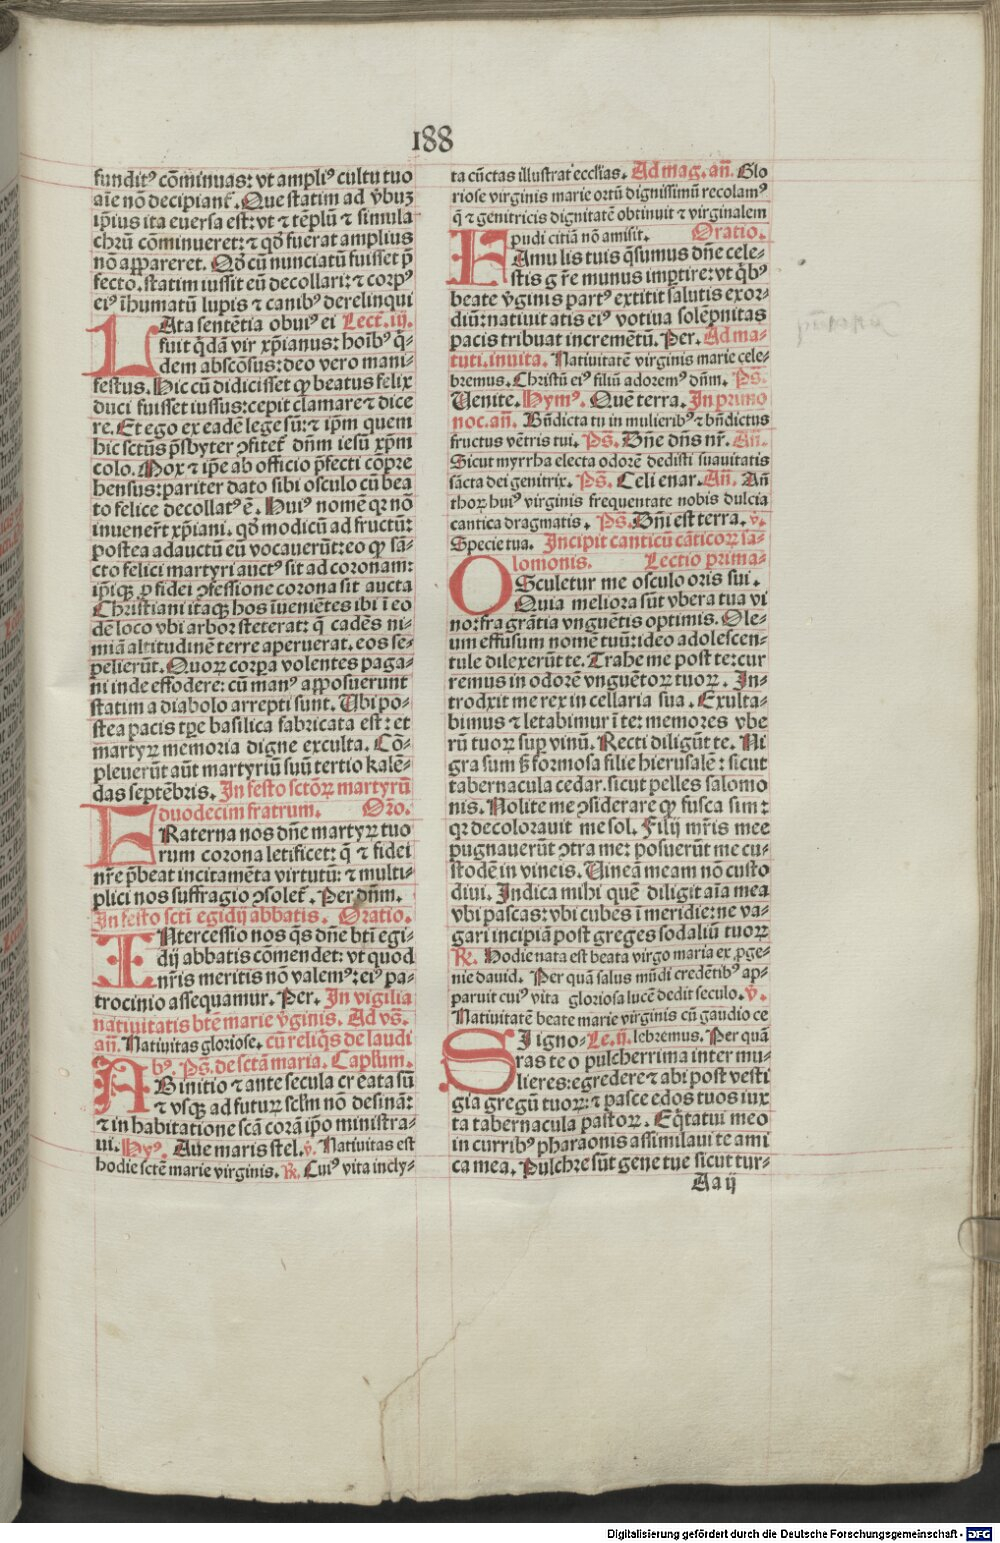 188
funditꝰ cōminuas: vt ampliꝰ cultu tuo
aīe nō decipiant᷑. Que statim ad v̄buꝫ
ip̄ius ita euersa est: vt ⁊ tēplū ⁊ simula
chrū cōminueret: ⁊ qd̄ fuerat amplius
nō appareret. Qd̄ cū nunciatū fuisset p̄
fecto. statim iussit eū decollari: ⁊ corpꝰ
eiꝰ īhumatū lupis ⁊ canibꝰ derelinqui
LAta sentētia obuiꝰ ei Lect. iij.
fuit q̄dā vir xp̄ianus: hoībꝰ q̄-
dem abscōsus: deo vero mani-
festus. Hic cū didicisset ꝙ beatus felix
duci fuisset iussus: cepit clamare ⁊ dice
re. Et ego ex eadē lege sū: ⁊ ip̄m quem
hic sctūs p̄sbyter ꝯfitet᷑ dn̄m iesū xp̄m
colo. Mox ⁊ ip̄e ab officio p̄fecti cōpre
hensus: pariter dato sibi osculo cū bea
to felice decollatꝰ ē. Huiꝰ nomē qꝛ nō
inuener̄t xp̄iani. qd̄ modicū ad fructū:
postea adauctū eū vocauerūt: eo ꝙ sā-
cto felici martyri auctꝰ sit ad coronam:
ip̄iꝗꝫ ꝓ fidei ꝯfessione corona sit aucta
Christiani itaqꝫ hos īuenientes ibi ī eo
dē loco vbi arbor steterat: q̄ cadēs ni-
miā altitudinē terre aperuerat. eos se-
pelierūt. Quoꝝ corpa volentes paga-
ni inde effodere: cū manꝰ apposuerunt
statim a diabolo arrepti sunt. Ubi po-
stea pacis tꝑe basilica fabricata est: et
martyꝝ memoria digne exculta. Cō-
pleuerūt aūt martyriū suū tertio kalē-
das septēbris. In festo sctōꝝ martyrū
duodecim fratrum. Oro.
FRaterna nos dn̄e martyꝝ tuo
rum corona letificet: q̄ ⁊ fidei
nr̄e p̄beat incitamēta virtutū: ⁊ multi-
plici nos suffragio ꝯsolet᷑. Per dn̄m.
In festo scti egidij abbatis. Oratio.
INtercessio nos q̄s dn̄e bti egi-
dij abbatis cōmendet: vt quod
nr̄is meritis nō valemꝰ: eiꝰ pa-
trocinio assequamur. Per. In vigilia
natiuitatis btē marie v̄ginis. Ad vs̄.
an̄. Natiuitas gloriose. cu reliq̄s de laudi
bꝰ. Ps̄. de sctā maria. Caplum.
AB initio ⁊ ante secula creata sū
⁊ vsqꝫ ad futuꝝ sclm̄ nō desinā:
⁊ in habitatione scā corā ip̄o ministra-
ui. Hyꝰ. Aue maris stel. v̄. Natiuitas est
hodie sctē marie virginis. ℟. Cuiꝰ vita incly-
ta cūctas illustrat ecclias. Ad mag. an̄. Glo
riose virginis marie ortū dignissimū recolamꝰ
q̄ ⁊ genitricis dignitatē obtinuit ⁊ virginalem
pudicitiā nō amisit. Oratio.
FAmulis tuis q̄sumus dn̄e cele-
stis gr̄e munus imptire: vt q̄bꝰ
beate v̄ginis partꝰ extitit salutis exor-
diū: natiuitatis eiꝰ votiua solēpnitas
pacis tribuat incremētū. Per. Ad ma-
tuti. inuita. Natiuitatē virginis marie cele-
bremus. Christū eiꝰ filiū adoremꝰ dn̄m. Ps̄.
Venite. Hymꝰ. Quē terra. In primo
noc. an̄. Bn̄dicta tu in mulieribꝰ ⁊ bn̄dictus
fructus vētris tui. Ps̄. Dn̄e dn̄s nr̄. An̄.
Sicut myrrha electa odorē dedisti suauitatis
sācta dei genitrix. Ps̄. Celi enar. An̄. An̄
thoꝝ huiꝰ virginis frequentate nobis dulcia
cantica dragmatis. Ps̄. Dn̄i est terra. v̄.
Specie tua. Incipit canticū cāticoꝝ sa-
lomonis. Lectio prima-
OSculetur me osculo oris sui.
Quia meliora sūt vbera tua vi
no: fragrātia vnguētis optimis. Ole-
um effusum nomē tuū: ideo adolescen-
tule dilexerūt te. Trahe me post te: cur
remus in odorē vnguētoꝝ tuoꝝ. In-
trodxit me rex in cellaria sua. Exulta-
bimus ⁊ letabimur ī te: memores vbe
rū tuoꝝ sup vinū. Recti diligūt te. Ni
gra sum ß formosa filie hierusalē: sicut
tabernacula cedar. sicut pelles salomo
nis. Nolite me ꝯsiderare ꝙ fusca sim:
qꝛ decolorauit me sol. Filij mr̄is mee
pugnauerūt ꝯtra me: posuerūt me cu-
stodē in vineis. Vineā meam nō custo
diui. Indica mihi quē diligit aīa mea
vbi pascas: vbi cubes ī meridie: ne va-
gari incipiā post greges sodaliū tuoꝝ
℟. Hodie nata est beata virgo maria ex ꝓge-
nie dauid. Per quā salus mūdi credētibꝰ ap-
paruit cuiꝰ vita gloriosa lucē dedit seculo. v̄.
Natiuitatē beate marie virginis cū gaudio ce
SI igno- Le. ij. lebremus. Per quā
ras te o pulcherrima inter mu-
lieres: egredere ⁊ abi post vesti
gia gregū tuoꝝ: ⁊ pasce edos tuos iux
ta tabernacula pastoꝝ. Eq̄tatui meo
in curribꝰ pharaonis assimilaui te ami
ca mea. Pulchre sūt gene tue sicut tur-
Aa ij
Digitalisierung gefördert durch die Deutsche Forschungsgemeinschaft - DFG